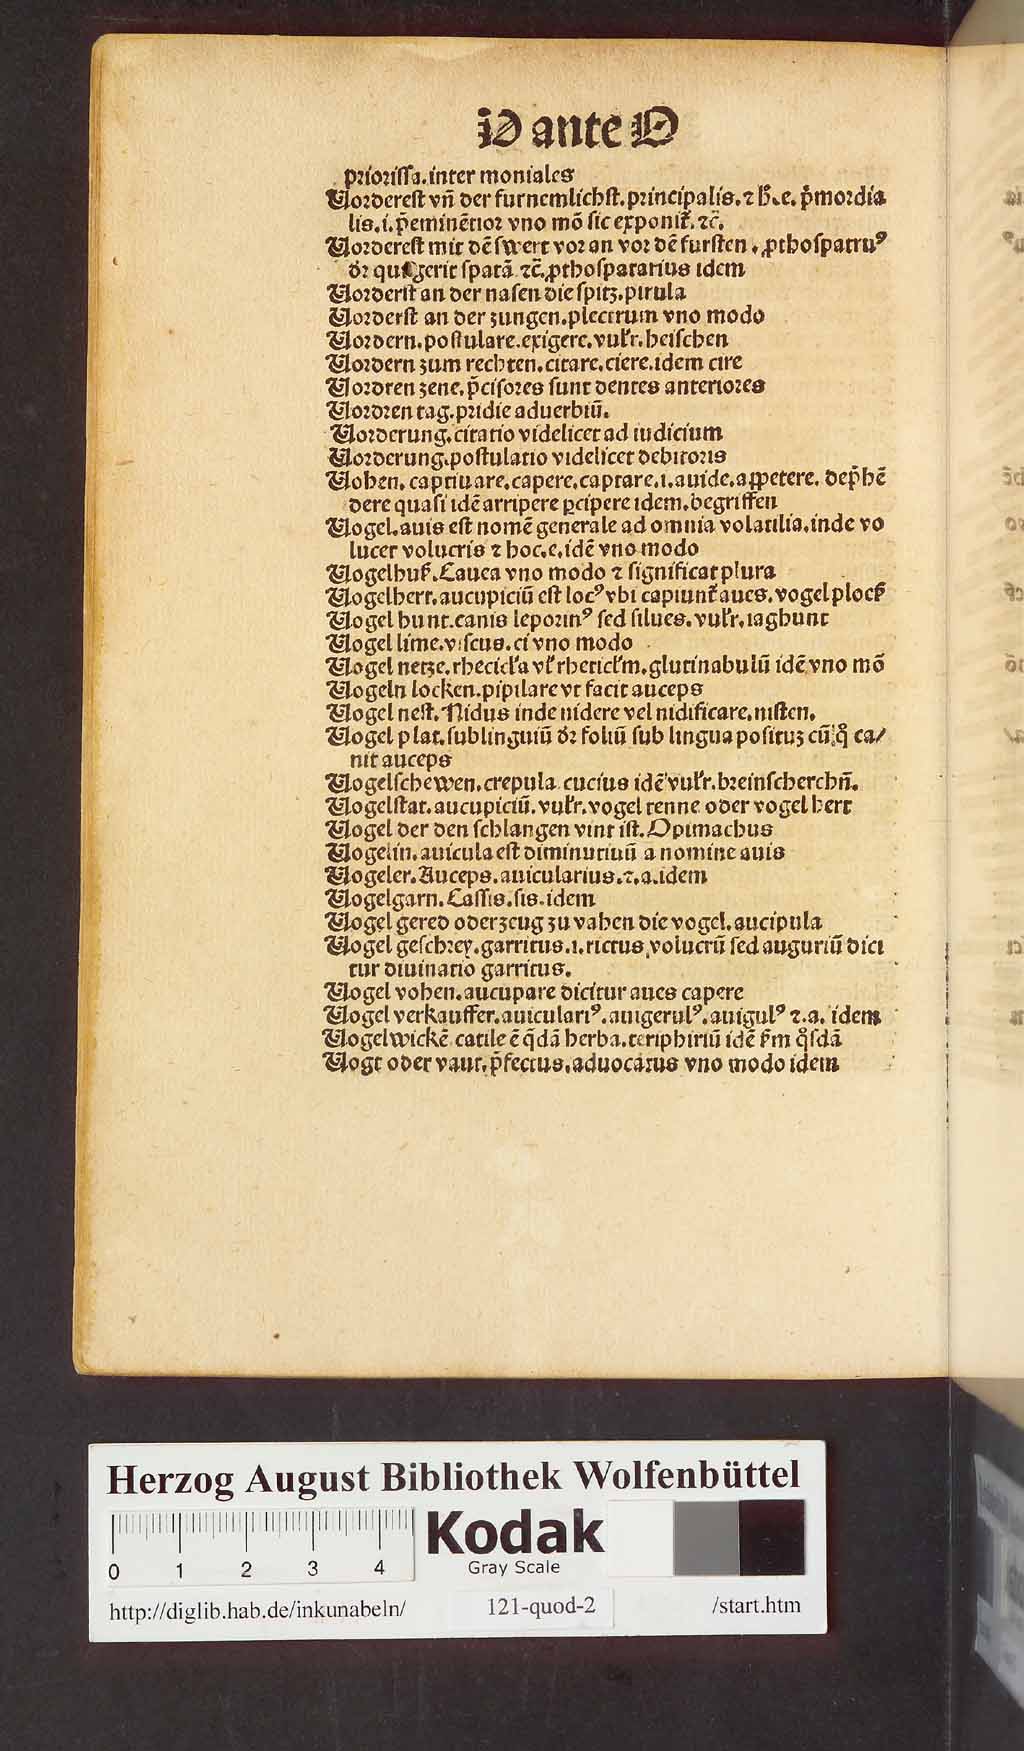 V ante O
priorissa.inter moniales
Vorderest vn̄ der furnemlichst.principalis.⁊ h̄.e. p̄mordia
lis.i.p̄eminētior vno mō sic exponit̄. ⁊c̄.
Vorderest mit dē swert vor an vor dē fursten. ꝓthospatruꝰ
dr̄ qui gerit spatā ⁊c̄.ꝓthospatarius idem
Vorderst an der nasen die spitz.pirula
Vorderst an der zungen.plectrum vno modo
Vordern.postulare.exigere.vulr̄.heischen
Vordern zum rechten.citare.ciere.idem cire
Vordren zene.p̄cisores sunt dentes anteriores
Vordren tag.pridie aduerbiū.
Vorderung.citatio videlicet ad iudicium
Vorderung.postulatio videlicet debitoris
Vohen.captiuare.capere.captare.i.auide.appetere. dep̄hē
dere quasi idē arripere ꝑcipere idem.begriffen
Vogel.auis est nomē generale ad omnia volatilia.inde vo
lucer volucris ⁊ hoc.e.idē vno modo
Vogelhuſ̄.Cauea vno modo ⁊ significat plura
Vogelhert.aucupiciū est locꝰ vbi capiunt̄ aues.vogel plock̄
Vogel hunt.canis leporinꝰ sed silues.vulr̄.iaghunt
Vogel lime.viscus.ci vno modo
Vogel netze.rhecicl̄a vl̄ rhericl̄m.glutinabulū idē vno mō
Vogeln locken.pipilare vt facit auceps
Vogel nest.Nidus inde nidere vel nidificare.nisten.
Vogel plat.sublinguiū dr̄ foliū sub lingua posituʒ cū qͦ ca/
nit auceps
Vogelschewen.crepula cucius idē vulr̄.breinscherchn̄.
Vogelstat.aucupiciū.vulr̄.vogel tenne oder vogel hert
Vogel der den schlangen vint ist.Opimachus
Vogelin.auicula est diminutiuū a nomine auis
Vogeler.Auceps.auicularius.⁊.a.idem
Vogelgarn.Cassis.sis.idem
Vogel gered oder zeug zu vahen die vogel.aucipula
Vogel geschrey.garritus.i.rictus volucrū sed auguriū dici
tur diuinatio garritus.
Vogel vohen.aucupare dicitur aues capere
Vogel verkauffer.auiculariꝰ.auigerulꝰ.auigulꝰ ⁊.a. idem
Vogelwickē catile ē q̄dā herba.teriphiriū idē ẜm qͦsdā
Vogt oder vaut.p̄fectus.aduocatus vno modo idem
Herzog August Bibliothek Wolfenbüttel
0 1 2 3 4
Kodak
Gray Scale
http://diglib.hab.de/inkunabeln/ 121-quod-2 /start.htm